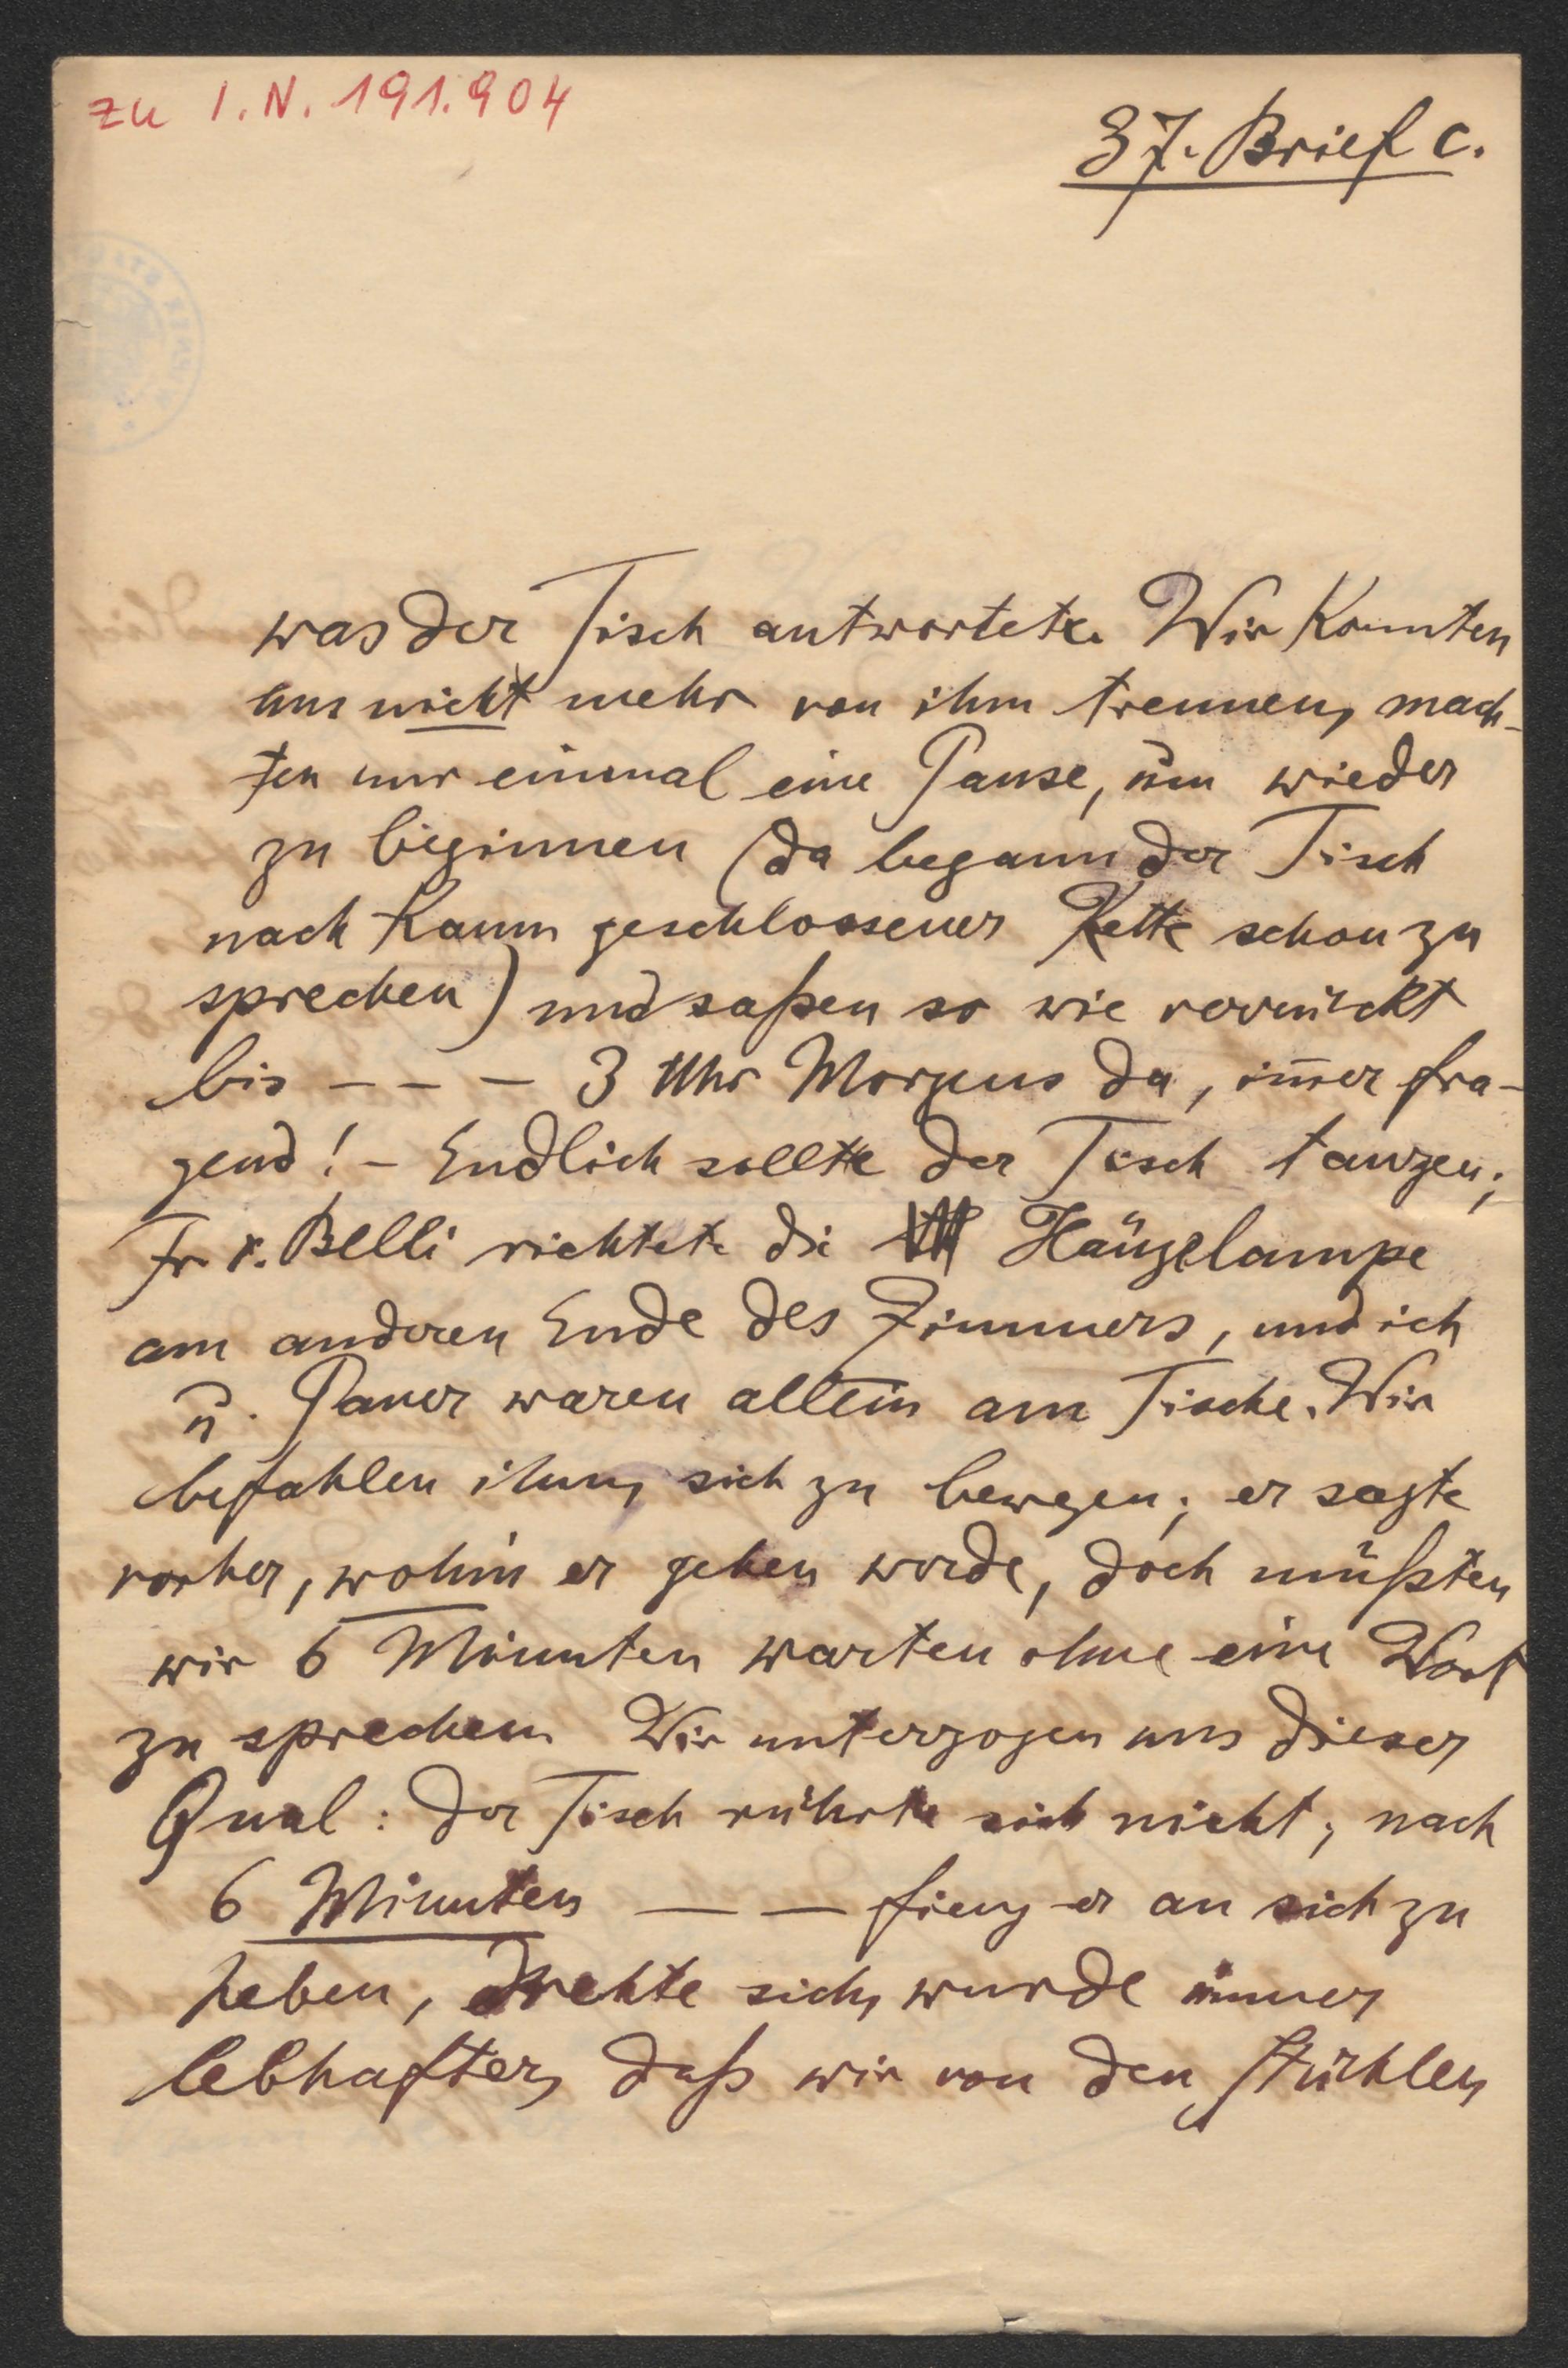 zu I.N. 191.904
37. Brief c.
was der Tisch antwortete. Wir konnten
uns nicht mehr von ihm trennen, mach-
ten nur einmal eine Pause, um wieder
zu beginnen (da begann der Tisch
nach kaum geschlossener Kette schon zu
sprechen) und saßen so wie verrückt
bis - - - 3 Uhr Morgens da, im̄er fra-
gend! - Endlich sollte der Tisch tanzen;
Fr. v. Belli richtete die Hängelampe
am anderen Ende des Zimmers, und ich
u. Pauer waren allein am Tische. Wir
befahlen ihm, sich zu bewegen; er sagte
vorher, wohin er gehen werde, doch müßten
wir 6 Minuten warten ohne ein Wort
zu sprechen. Wir unterzogen uns dieser
Qual: der Tisch rührte sich nicht; nach
6 Minuten — — fieng er an sich zu
heben, drehte sich, wurde immer
lebhafter, daß wir von den Stühlen